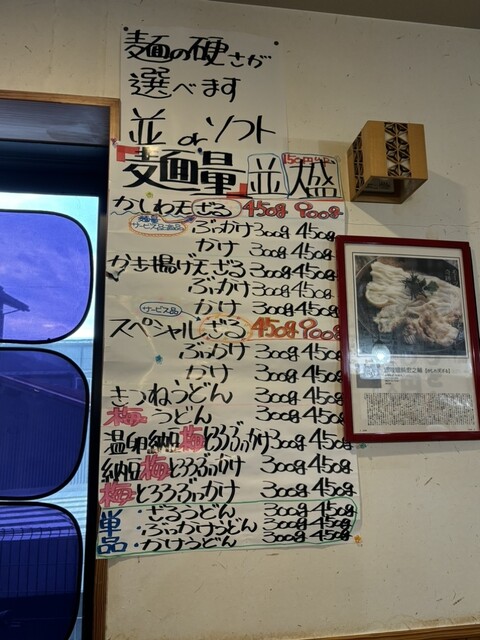 麺の硬さが
選べます
並 or ソフト
「麺量」 並 大盛
かしわ天ざる 450g 900g
サービス品
ぶっかけ 300g 450g
かけ 300g 450g
かき揚げ天ざる 300g 450g
ぶっかけ 300g 450g
サービス品
かけ 300g 450g
スペシャルざる 450g 900g
ぶっかけ 300g 450g
かけ 300g 450g
きつねうどん 300g 450g
梅うどん 300g 450g
温卵納豆梅とろろぶっかけ 300g 450g
納豆梅とろろぶっかけ 300g 450g
梅とろろぶっかけ 300g 450g
単品
・ざるうどん 300g 450g
・ぶっかけうどん 300g 450g
・かけうどん 300g 450g